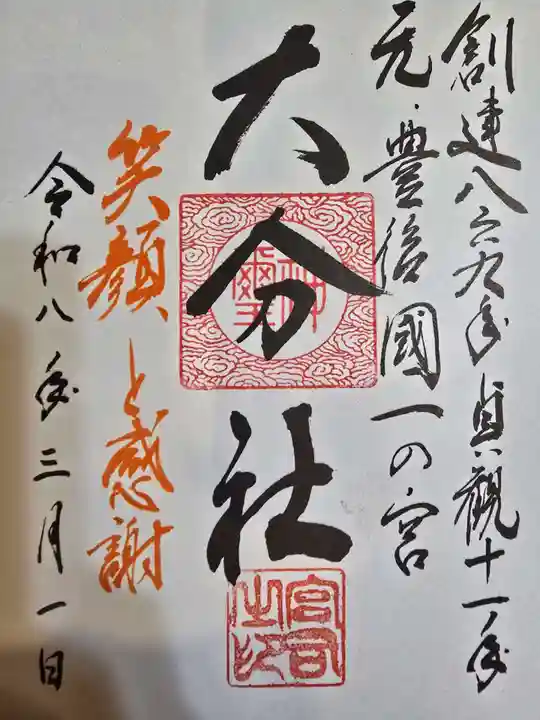 創建八六九年貞観十一年
元、豊後國一の宮
大分社
笑顔と感謝
令和八年三月一日
宮司之印